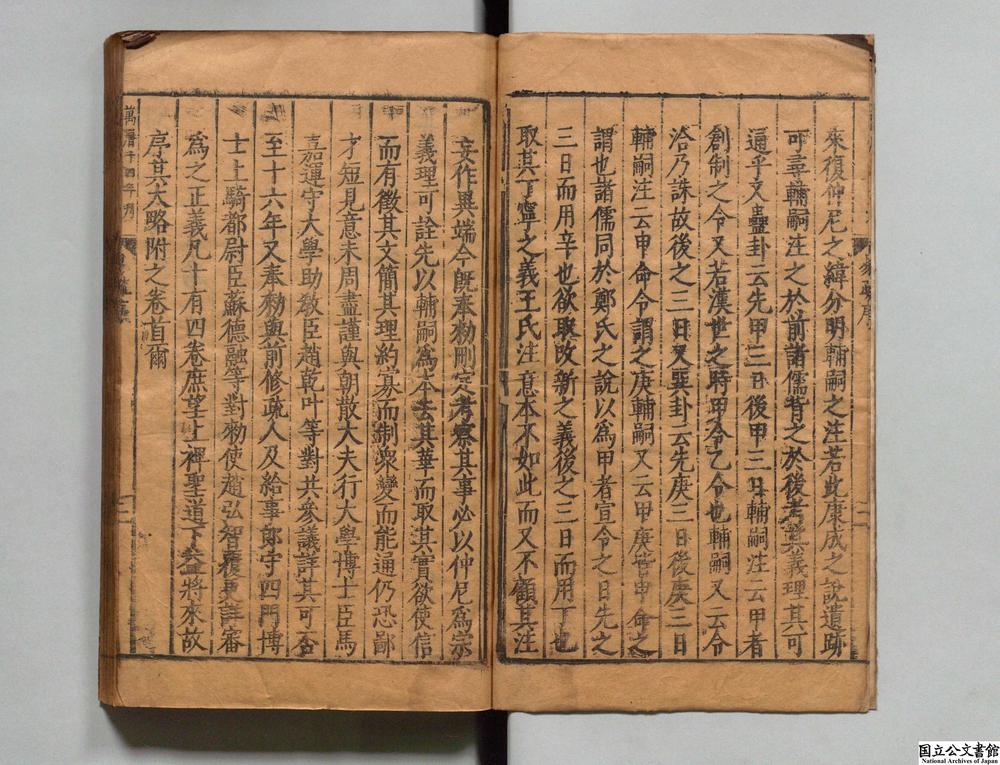 來復仲尼之緯分明輔嗣之注若此康成之說遺跡
可尋輔嗣注之於前諸儒背之於後考其義理其可
通乎又蠱卦云先甲三日後甲三日輔嗣注云甲者
創制之令又若漢世之時甲令乙令也輔嗣又云令
洽乃誅故後之三日又巽卦云先庚三日後庚三日
輔嗣注云申命令謂之庚輔嗣又云甲庚皆申命之
謂也諸儒同於鄭氏之說以爲甲者宣令之日先之
三日而用辛也欲取改新之義後之三日而用丁也
取其丁寧之義王氏注意本不如此而又不顧其注
妄作異端今旣奉勑刪定考察其事必以仲尼爲宗
義理可詮先以輔嗣爲本去其華而取其實欲使信
而有徵其文簡其理約寡而制衆變而能通仍恐鄙
才短見意未周盡謹與朝散大夫行大學博士臣馬
嘉運守大學助敎臣趙乾叶等對共參議詳其可否
至十六年又奉勑與前修疏人及給事郎守四門博
士上騎都尉臣蘇德融等對勑使趙弘智覆更詳審
爲之正義凡十有四卷庶望上裨聖道下益將來故
序其大略附之卷首爾
萬曆十四年刊
国立公文書館
National Archives of Japan